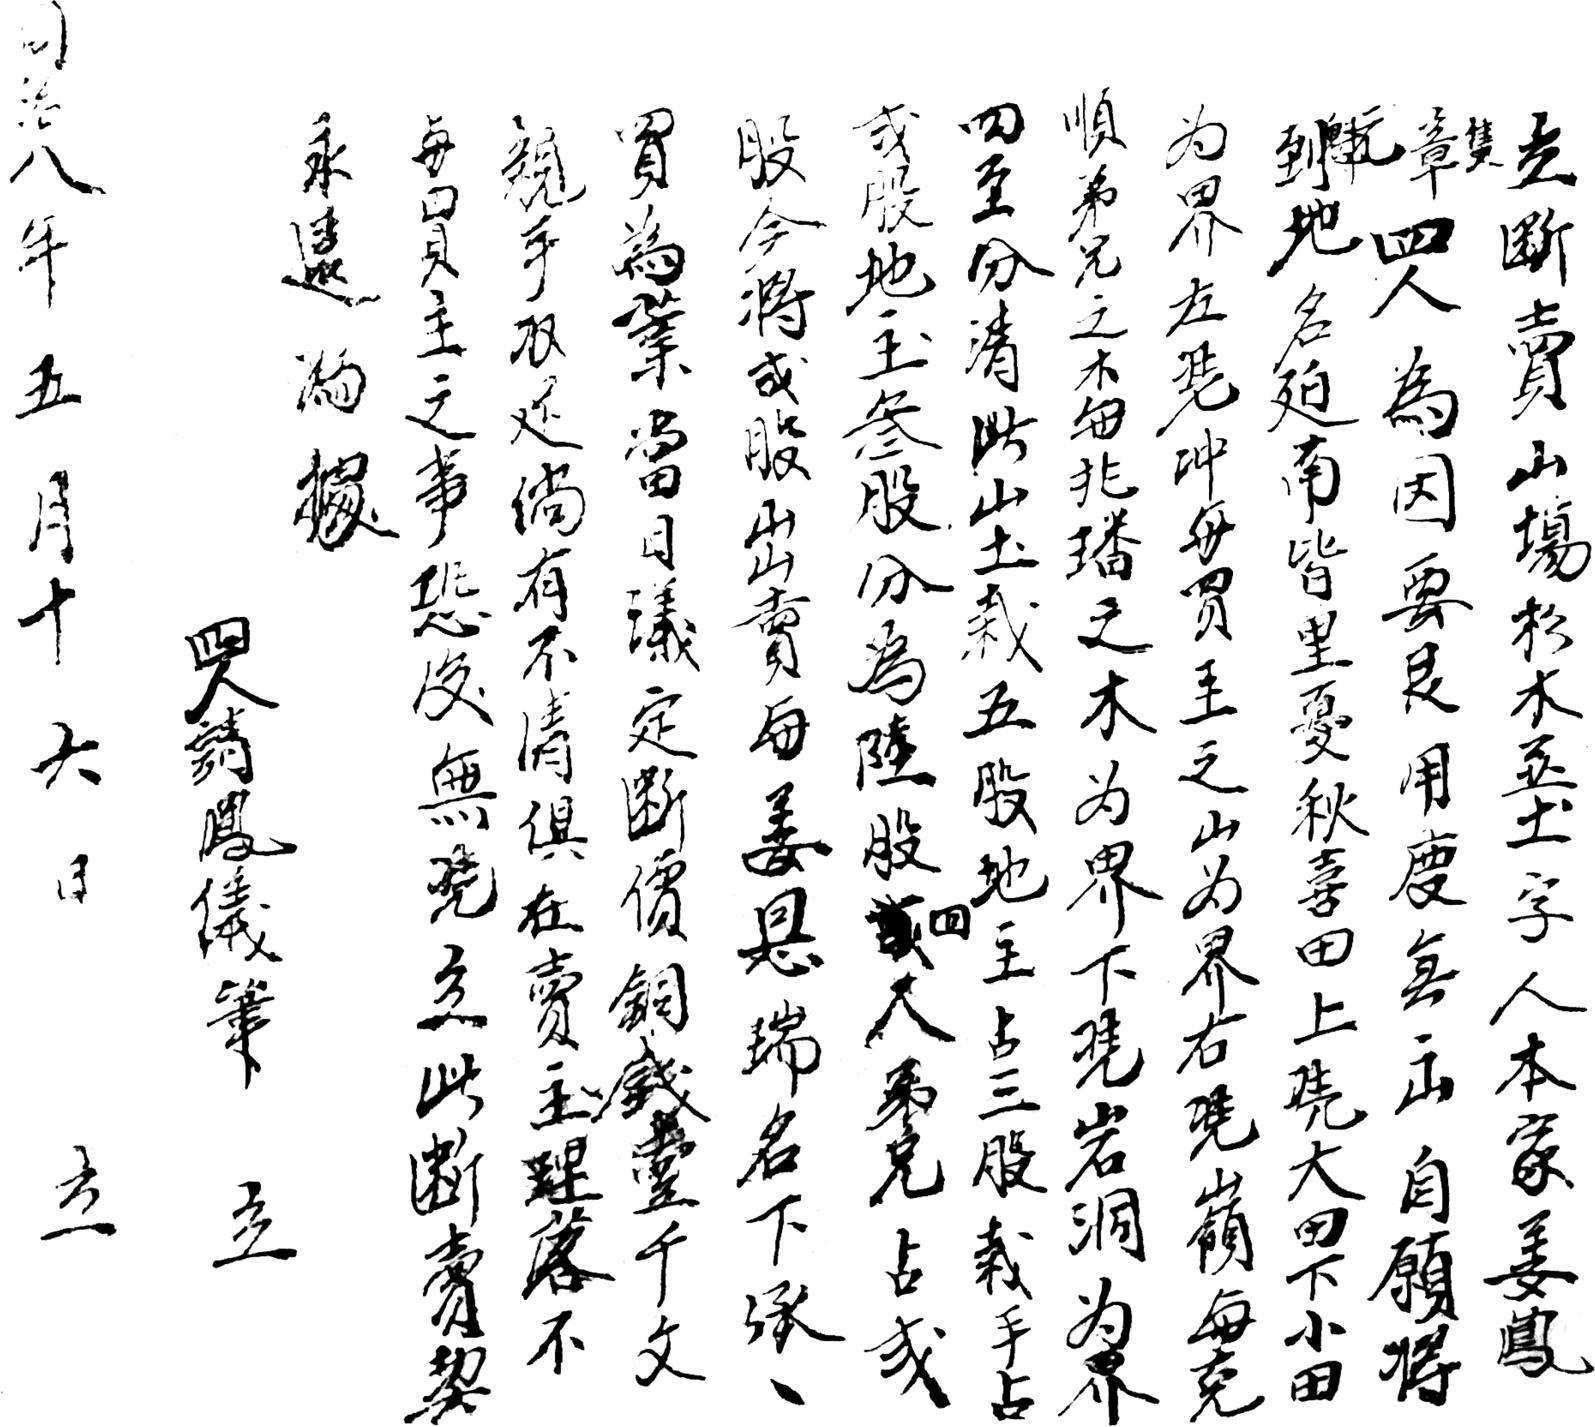 立断賣山塲杉木並土字人本家姜鳳
隻
章四人為因要艮用度無出自願將
到地名廹南皆里憂秋喜田上凴大田下小田
为界左凴冲毎買主之山为界右凴嶺每克
順弟兄之木毎兆璠之木为界下凴岩洞为界
四至分清此山土栽五股地主占三股栽手占
弍股地主叁股分為陸股四人弟兄占弍
股今將弍股出賣每姜恩瑞名下承丶
買為業當日議定断價銅錢壹千文
親手收足倘有不清俱在賣主理落不
每買主之事恐後無凴立此断賣契
永遠為據
四人請鳳儀筆 立
同治八年五月十六日 立